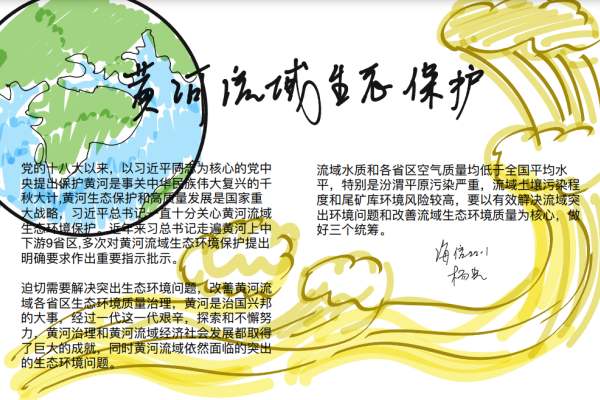 黄河流域生态保护
党的十八大以来，以习近平同志为核心的党中
央提出保护黄河是事关中华民族伟大复兴的千
秋大计,黄河生态保护和高质量发展是国家重
大战略，习近平总书记一直十分关心黄河流域
生态环境保护。近年来习总书记走遍黄河上中
下游9省区,多次对黄河流域生态环境保护提出
明确要求作出重要指示批示。
迫切需要解决突出生态环境问题，改善黄河流
域各省区生态环境质量治理，黄河是治国兴邦
的大事，经过一代这一代艰辛，探索和不懈努
力，黄河治理和黄河流域经济社会发展都取得
了巨大的成就，同时黄河流域依然面临的突出
的生态环境问题。
流域水质和各省区空气质量均低于全国平均水
平，特别是汾渭平原污染严重，流域土壤污染程
度和尾矿库环境风险较高，要以有效解决流域突
出环境问题和改善流域生态环境质量为核心，做
好三个统筹。